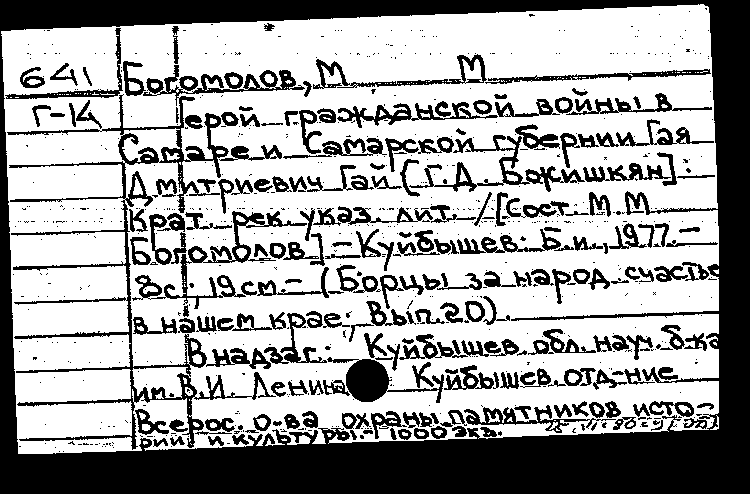 641 Богомолов, М М
Г-14 Герой гражданской войны в
Самаре и Самарской губернии Гая
Дмитриевич Гай [Г.Д. Божишкян]:
Крат. рек. указ. лит. / [Сост. М.М
Богомолов]. – Куйбышев: Б.и., 1977. –
8с.; 19 см. – (Борцы за народ. счастье
в нашем крае; Вып. 20).
В надзаг.: Куйбышев. обл. науч. б-ка
им. В.И. Ленина Куйбышев. отд-ние
Всерос. о-ва охраны памятников исто-
рии и культуры. – 1000 экз.